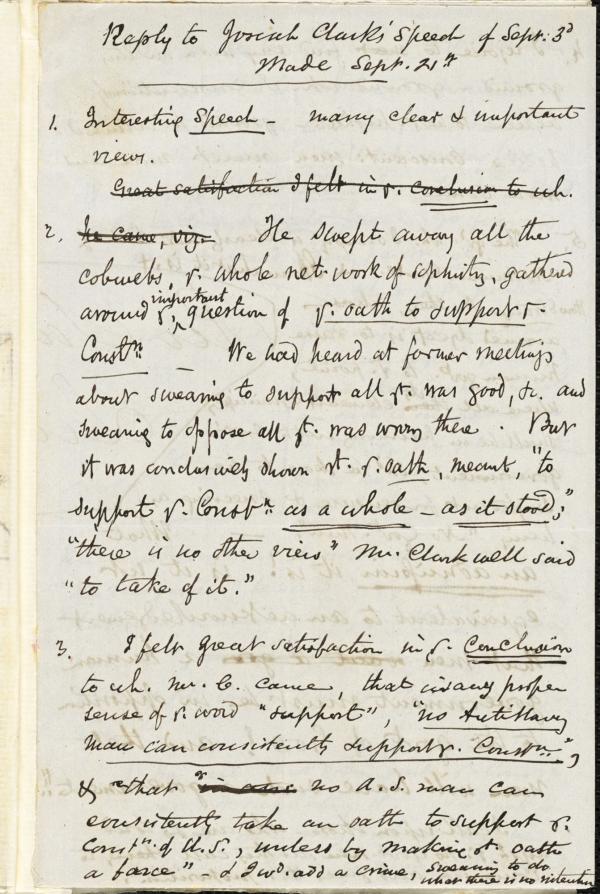 Reply to Josiah Clark's Speech of Sept. 3d
Made Sept. 21st
1. Interesting Speech - many clear & important
views.
Great satisfaction I felt in y. conclusion to wh.
2. he came, viz. He swept away all the
cobwebs, y. whole net-work of sophistry, gathered
around y. important question of y. oath to support y.
Constn. — We had heard at former meetings
about swearing to support all yt. was good, &c. and
swearing to oppose all yt. was wrong there. But
it was conclusively shown yt. y. oath, meant, "to
support y. Constn. as a whole - as it stood;"
"there is no other view" Mr. Clark well said
"to take of it."
3. I felt great satisfaction in y. conclusion
to wh. Mr. C. came, that in any proper
sense of y. word "support", "no Antislavery
man can consistently support y. Constn.",
& "that in any no A.S. man can
consistently take an oath to support y.
Constn. of U.S., unless by making yt. oath
a farce" - & I wd. add a crime, swearing to do
what there is no intention